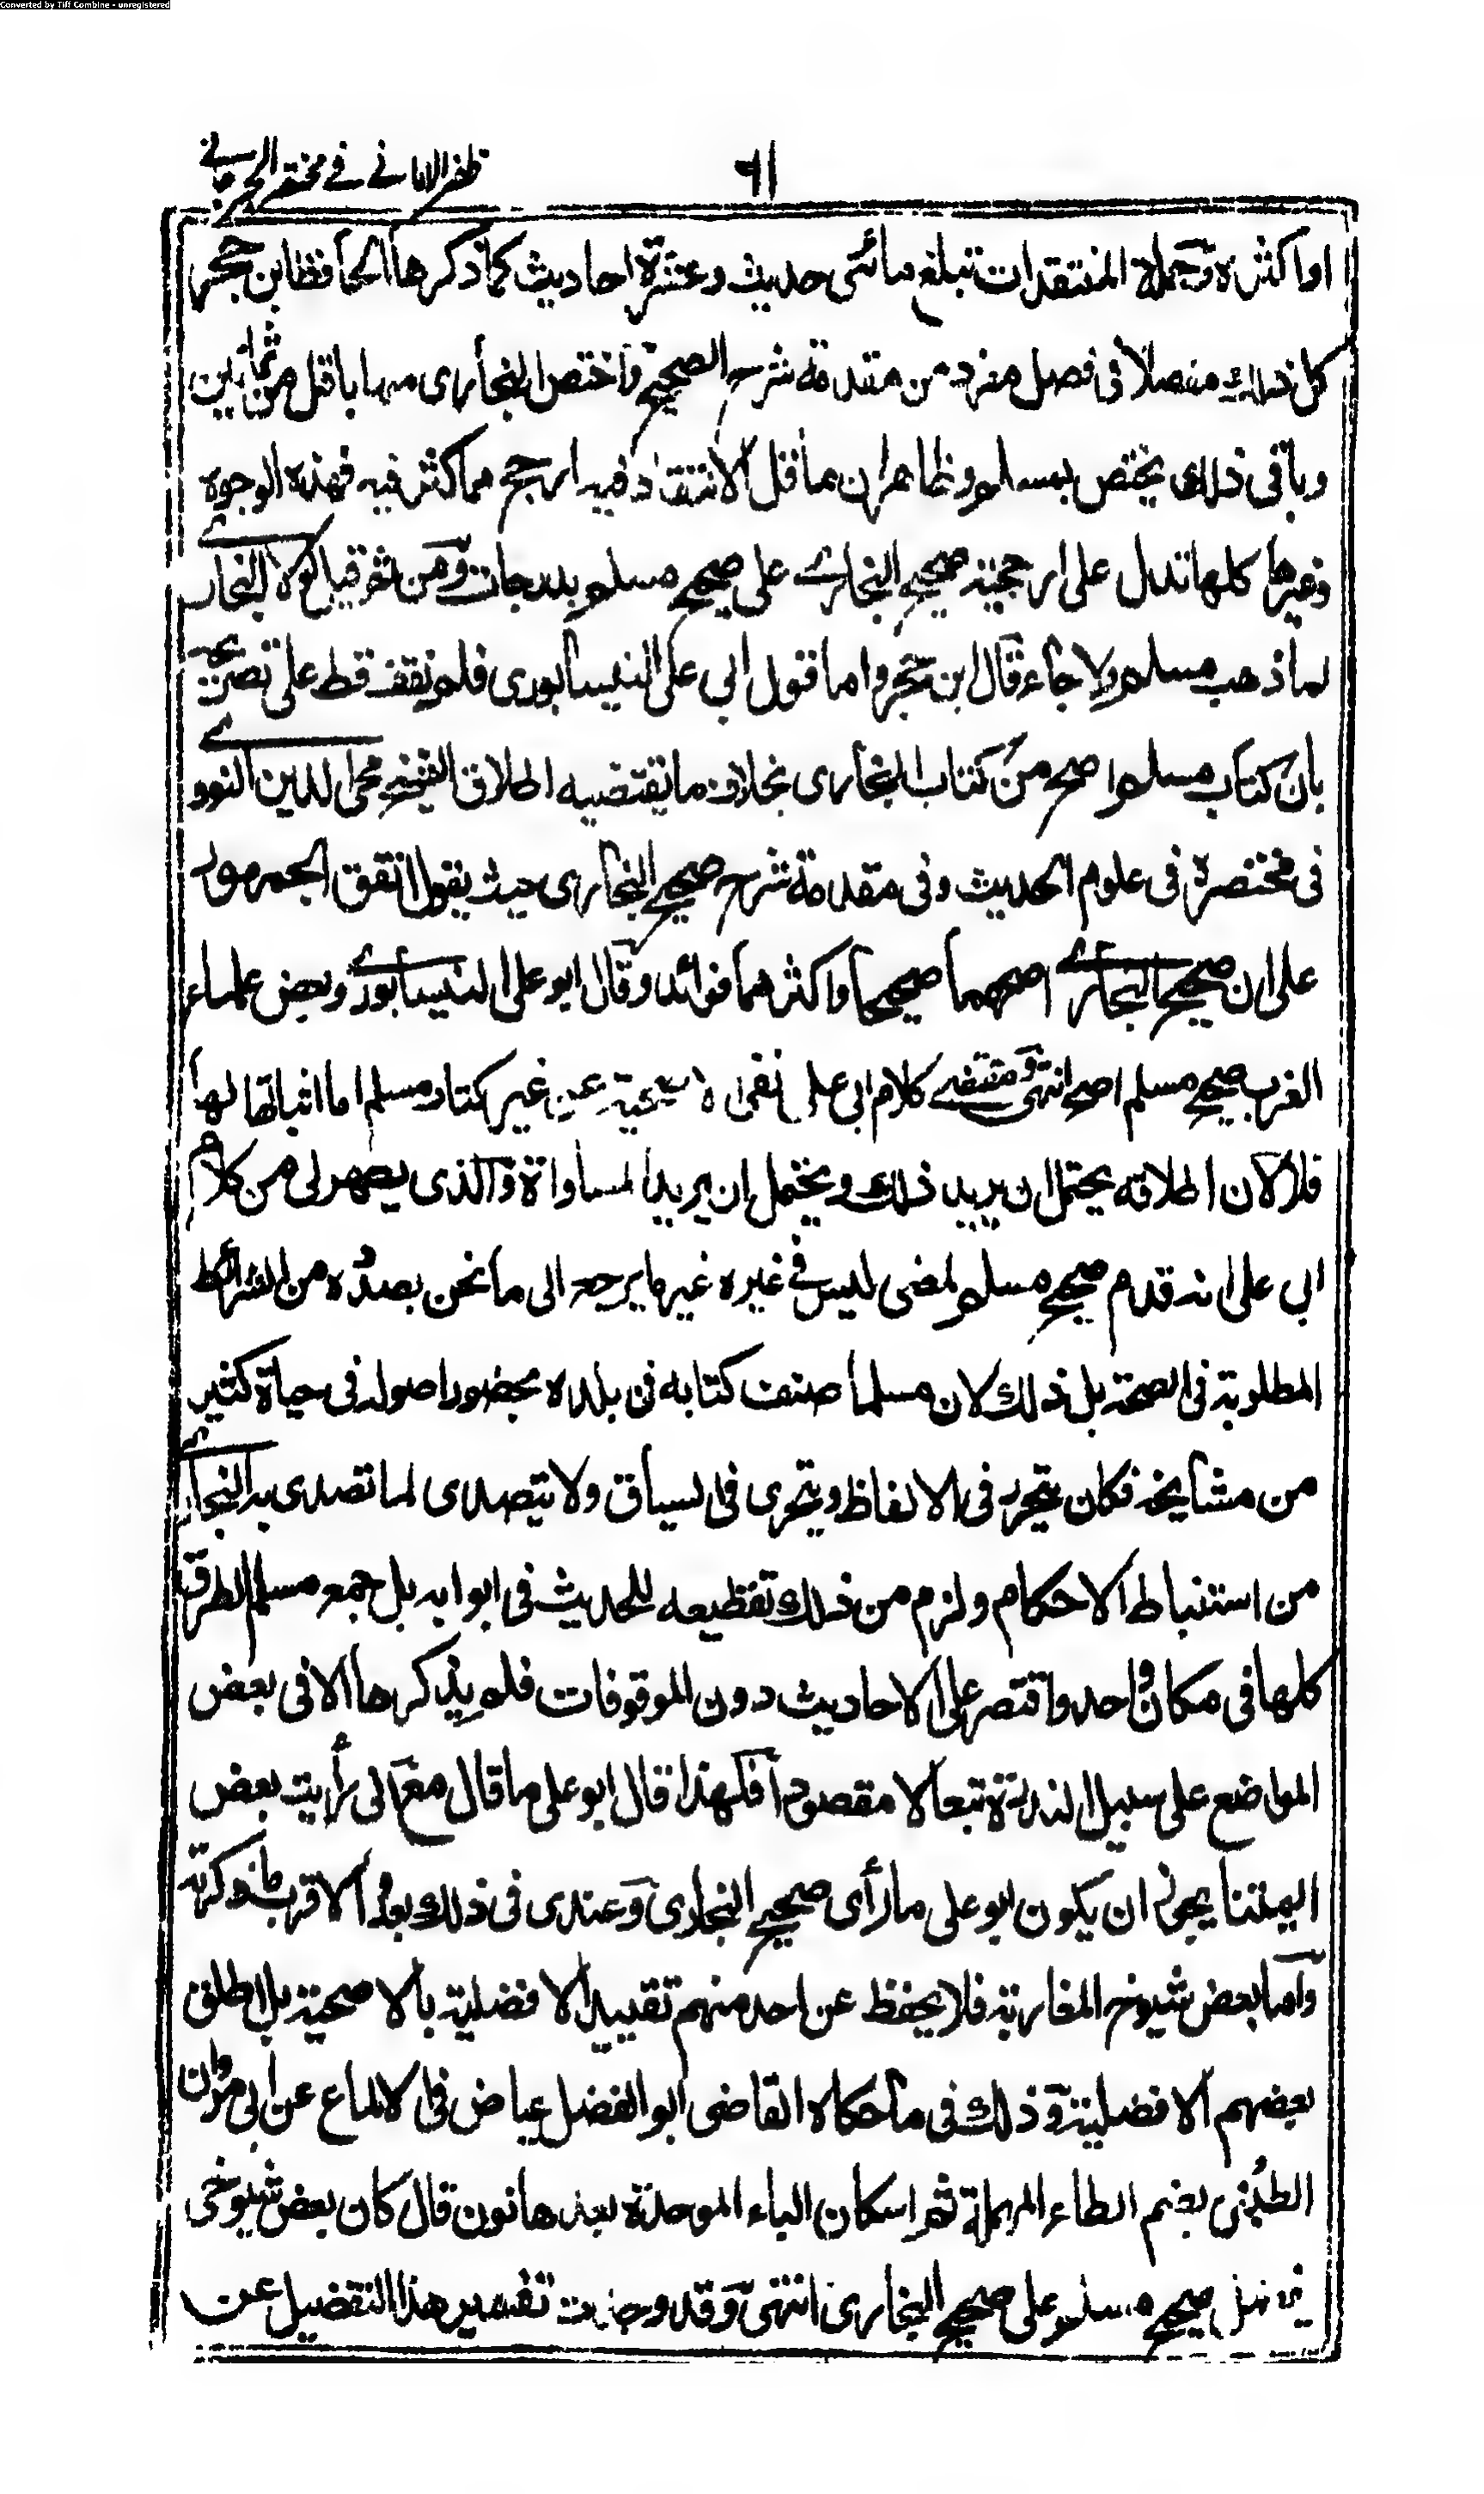 Converted by Tiff Combine - unregistered
ظفر الامانی فی مختصر الجرجانی
٦١
او اكثره وجملة المنتقدات تبلغ مائتی حدیث وعشرة احادیث كما ذكرها الحافظ ابن حجر
كل ذلك مفصلا فی فصل مفرد من مقدمة شرح الصحیح واختص البخاری منها باقل من ثمانین
وباقی ذلك یختص بمسلم وظاهر ان ما قل الانتقاد فیه ارجح مما كثر فیه فهذه الوجوه
وغیرها كلها تدل علی ارجحیة صحیح البخاری علی صحیح مسلم بدرجات ومن ثم قیل لولا البخاری
لما ذهب مسلم ولا جاء قال ابن حجر واما قول ابی علی النیسابوری فلم نقف قط علی تصریحه
بان كتاب مسلم اصح من كتاب البخاری بخلاف ما یقتضیه اطلاق الشیخ محی الدین النووی
فی مختصره فی علوم الحدیث وفی مقدمة شرح صحیح البخاری حیث یقول اتفق الجمهور
علی ان صحیح البخاری اصحهما صحیحا واكثرهما فوائد وقال ابو علی النیسابوری وبعض علماء
الغرب صحیح مسلم اصح انتهی ومقتضی كلام ابی علی نفی الاصحیة عن غیر كتاب مسلم اما اثباتها لها
فلا لان اطلاقه یحتمل ان یرید ذلك ویحتمل ان یرید المساواة والذی یظهر لی من كلام
ابی علی انه قدم صحیح مسلم لمعنی لیس فی غیره غیر ما یرجع الی ما نحن بصدده من الشرائط
المطلوبة فی الصحة بل ذلك لان مسلما صنف كتابه فی بلده بحضور اصوله فی حیاة كثیر
من مشایخه فكان یتحرز فی الالفاظ ویتحری فی السیاق ولا یتصدی لما تصدی به البخاری
من استنباط الاحكام ولزم من ذلك تقطیعه للحدیث فی ابوابه بل جمع مسلم الطرق
كلها فی مكان واحد واقتصر علی الاحادیث دون الموقوفات فلم یذكرها الا فی بعض
المواضع علی سبیل الندرة تبعا لا مقصودا فلهذا قال ابو علی ما قال مع انی رأیت بعض
ایمتنا یجوز ان یكون ابو علی ما رأی صحیح البخاری وعندی فی ذلك بعد والاقرب ما ذكرته
واما بعض شیوخ المغاربة فلا یحفظ عن احد منهم تقیید الافضلیة بالاصحیة بل اطلق
بعضهم الافضلیة وذلك فی ما حكاه القاضی ابو الفضل عیاض فی الالماع عن ابی مروان
الطبنی بضم الطاء المهملة ثم اسكان الباء الموحدة بعدها نون قال كان بعض شیوخی
یفضل صحیح مسلم علی صحیح البخاری انتهی وقد وجدت تفسیر هذا التفضیل عن